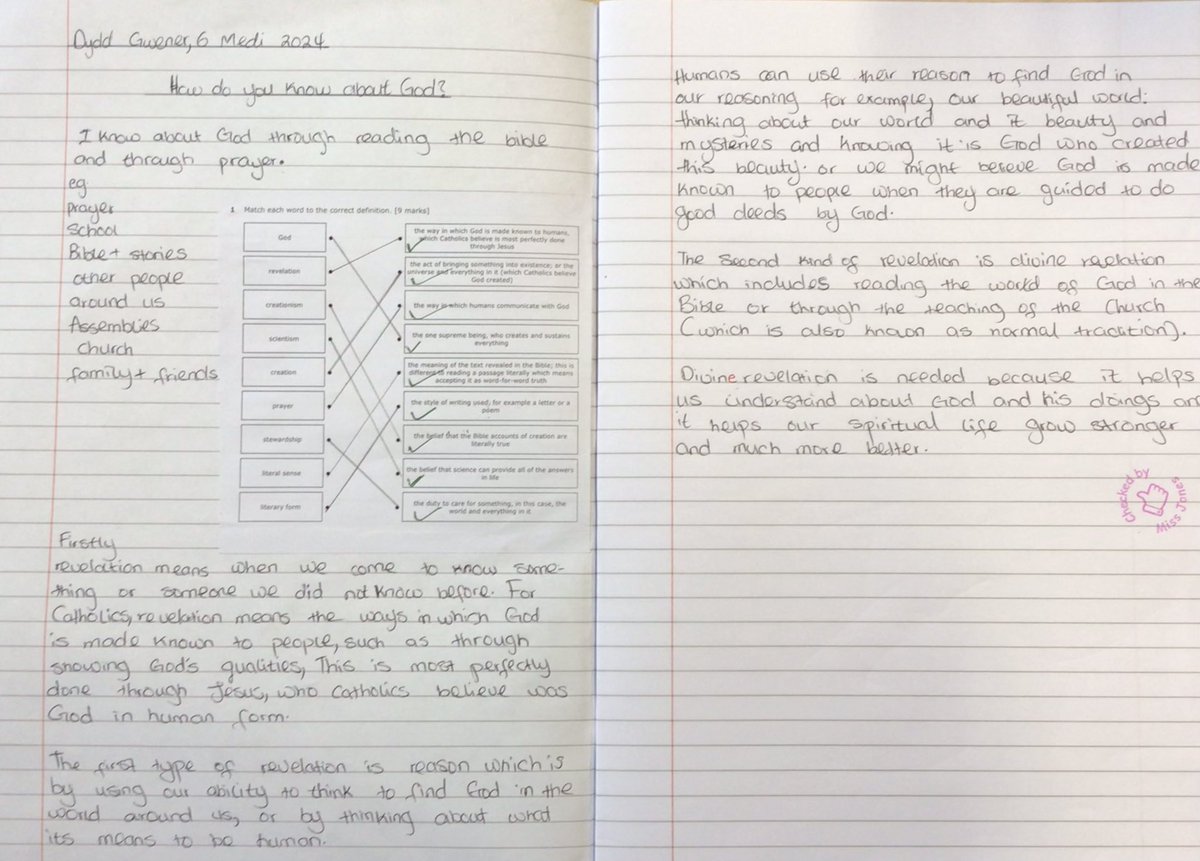 Dydd Gwener, 6 Medi 2024
How do you know about God?
I know about God through reading the bible
and through prayer.
eg
prayer
School
Bible + stories
other people
around us
Assemblies
Church
family + friends
1 Match each word to the correct definition. [9 marks]
God
revelation
creationism
scientism
creation
prayer
stewardship
literal sense
literary form
the way in which God is made known to humans,
which Catholics believe is most perfectly done
through Jesus
the act of bringing something into existence; or the
universe and everything in it (which Catholics believe
God created)
the way in which humans communicate with God
the one supreme being, who creates and sustains
everything
the meaning of the text revealed in the Bible; this is
different to reading a passage literally which means
accepting it as word-for-word truth
the style of writing used, for example a letter or a
poem
the belief that the Bible accounts of creation are
literally true
the belief that science can provide all of the answers
in life
the duty to care for something, in this case, the
world and everything in it
Firstly
revelation means when we come to know some-
thing or someone we did not know before. For
Catholics, revelation means the ways in which God
is made known to people, such as through
showing God's qualities, This is most perfectly
done through Jesus, who Catholics believe was
God in human form.
The first type of revelation is reason which is
by using our ability to think to find God in the
world around us, or by thinking about what
its means to be human.
Humans can use their reason to find God in
our reasoning for example, our beautiful world:
thinking about our world and it beauty and
mysteries and knowing it is God who created
this beauty. or we might beleve God is made
known to people when they are guided to do
good deeds by God.
The second kind of revelation is divine
which includes reading the world of God in the
Bible or through the teaching of the Church
(which is also known as normal tracation).
Divine revelation is needed because it helps
us understand about God and his doings an
it helps our spiritual life grow stronger
and much more better.
Checked by
Miss Jones